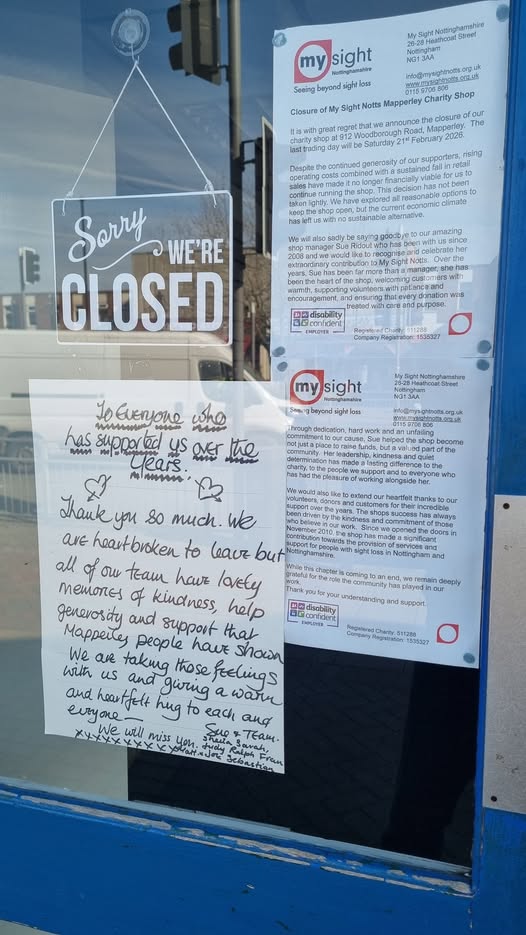 Sorry
WE'RE
CLOSED
my sight
Nottinghamshire
Seeing beyond sight loss
My Sight Nottinghamshire
26-28 Heathcoat Street
Nottingham
NG1 3AA
info@mysightnotts.org.uk
www.mysightnotts.org.uk
0115 9706 806
Closure of My Sight Notts Mapperley Charity Shop
It is with great regret that we announce the closure of our
charity shop at 912 Woodborough Road, Mapperley. The
last trading day will be Saturday 21st February 2026.
Despite the continued generosity of our supporters, rising
operating costs combined with a sustained fall in retail
sales have made it no longer financially viable for us to
continue running the shop. This decision has not been
taken lightly. We have explored all reasonable options to
keep the shop open, but the current economic climate
has left us with no sustainable alternative.
We will also sadly be saying goodbye to our amazing
shop manager Sue Ridout who has been with us since
2008 and we would like to recognise and celebrate her
extraordinary contribution to My Sight Notts. Over the
years, Sue has been far more than a manager, she has
been the heart of the shop, welcoming customers with
warmth, supporting volunteers with patience and
encouragement, and ensuring that every donation was
treated with care and purpose.
disability
confident
EMPLOYER
Registered Charity: 511288
Company Registration: 1535327
my sight
Nottinghamshire
Seeing beyond sight loss
My Sight Nottinghamshire
26-28 Heathcoat Street
Nottingham
NG1 3AA
info@mysightnotts.org.uk
www.mysightnotts.org.uk
0115 9706 806
Through dedication, hard work and an unfailing
commitment to our cause, Sue helped the shop become
not just a place to raise funds, but a valued part of the
community. Her leadership, kindness and quiet
determination has made a lasting difference to the
charity, to the people we support and to everyone who
has had the pleasure of working alongside her.
We would also like to extend our heartfelt thanks to our
volunteers, donors and customers for their incredible
support over the years. The shops success has always
been driven by the kindness and commitment of those
who believe in our work. Since we opened the doors in
November 2010, the shop has made a significant
contribution towards the provision of services and
support for people with sight loss in Nottingham and
Nottinghamshire.
While this chapter is coming to an end, we remain deeply
grateful for the role the community has played in our
work.
Thank you for your understanding and support.
disability
confident
EMPLOYER
Registered Charity: 511288
Company Registration: 1535327
To Everyone who
has supported us over the
Years.
Thank you so much. We
are heartbroken to leave but
all of our team have lovely
memories of kindness, help
generosity and support that
Mapperley people have shown
We are taking those feelings
with us and giving a warm
and heartfelt hug to each and
everyone —
We will miss you.
xxxxxxxxxx
Sue & Team.
Sheila Sarah,
Judy Ralph Fran
Joe Sebastian